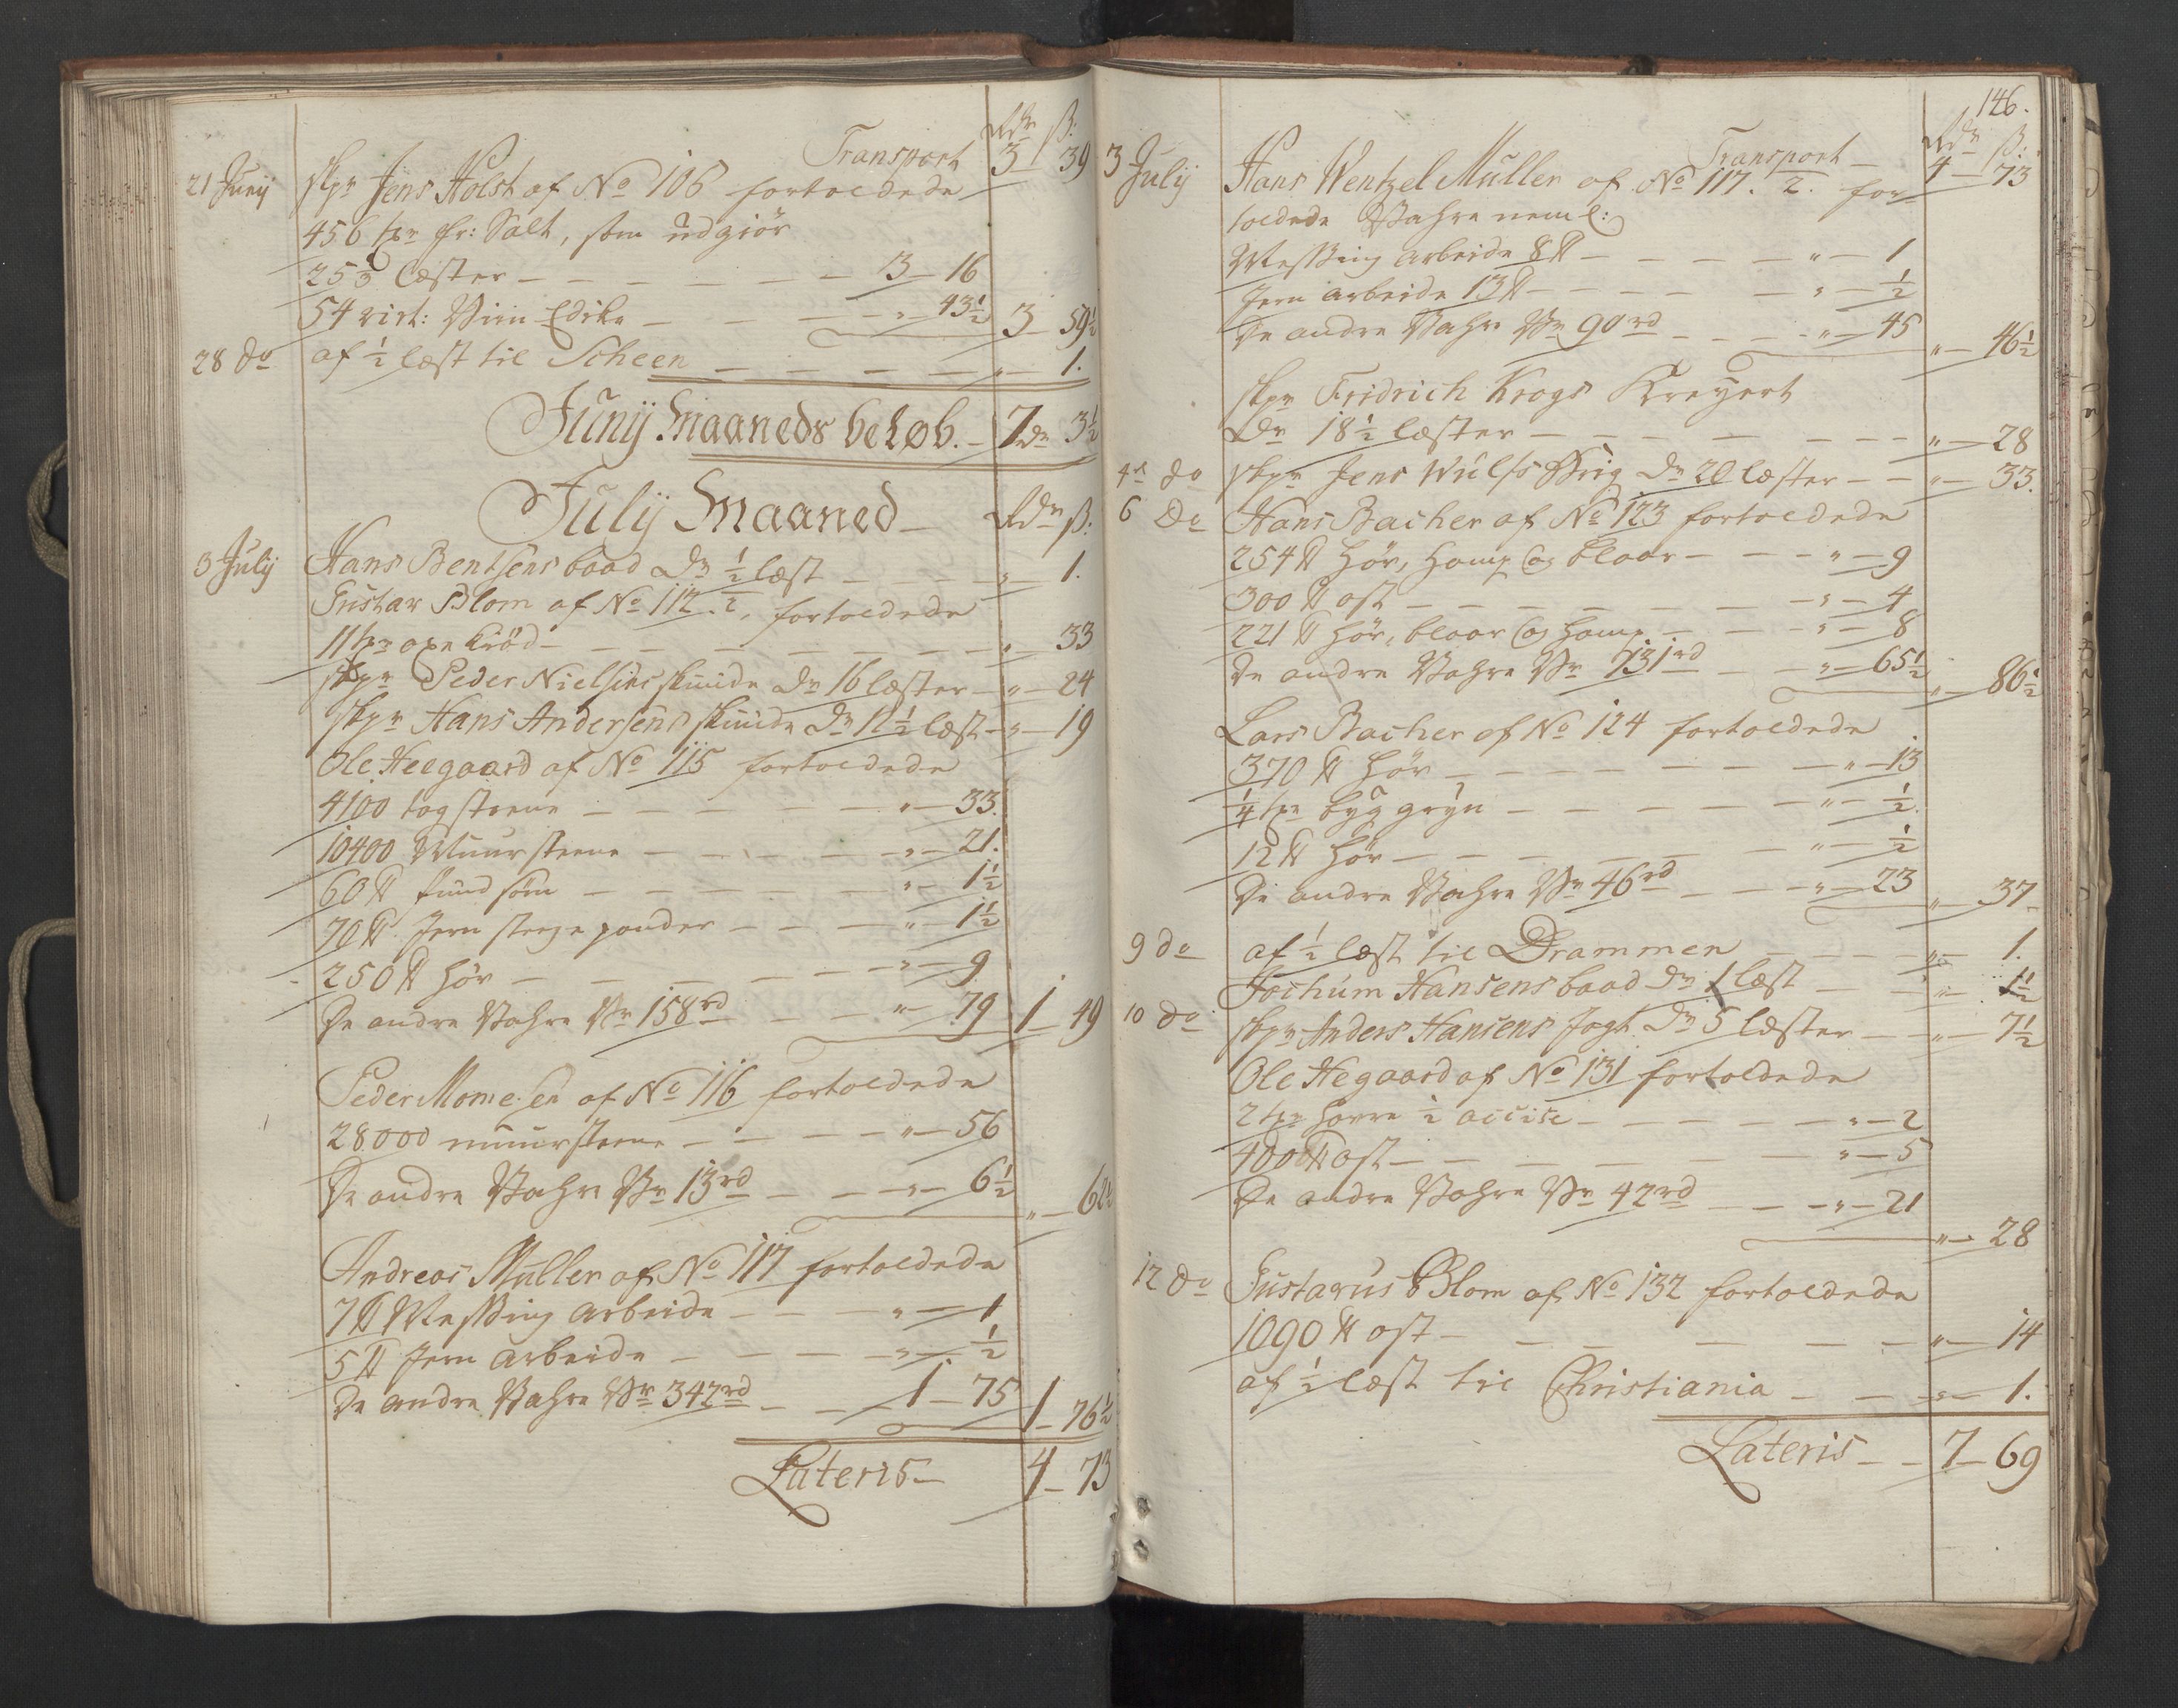 Rdr ß:
Transport 3 39
21 Junij skpr Jens Holst af No 106 fortoldede
456 tr fr: Salt, som udgiör
25⅓ læster — 3 — 16
54 virt: Viin Edike — " — 43½ 3 — 59½
28 do af ½ læst til Scheen — " — 1.
Junij Maaneds beløb. — 7 dr 3½
Julij Maaned — Rdr ß:
3 Julij Hans Bentsens baad Dr ½ læst — " — 1.
Gustav Blom af No 112.½. fortoldede
11 tr oxe kiöd — " — 33
skpr Peder Nielsens skuide Dr 16 læster — " — 24
skpr Hans Andersens skuide Dr 12½ læst — " — 19
Ole Heegaard af No 115 fortoldede
4100 tagsteene — " — 33.
10400 Muursteene — " — 21.
60 ℔ sund söm — " — 1½
70 ℔ Jern steege pander — " — 1½
250 ℔ hör — " — 9
De andre Vahre Vr 158 rd — " — 79 1 — 49
Peder Momesen af No 116 fortoldede
28000 muursteene — " — 56
De andre Vahre Vr 13 rd — " — 6½ " — 62½
Andreas Müller af No 117 fortoldede
7 ℔ Messing arbeide — " — 1
5 ℔ Jern arbeide — " — ½
De andre Vahre Vr 342 rd — 1 — 75 1 — 76½
Lateris — 4 — 73
146.
Rdr ß:
Transport — 4 — 73
3 Julij Hans Wentzel Müller af No 117.½. for
toldede Vahre neml:
Messing arbeide 8 ℔ — " — 1
Jern arbeide 13 ℔ — " — ½
De andre Vahre Vr 90 rd — " — 45 " — 46½
skpr Fridrich Krogs Kreyert
Dr 18½ læster — " — 28
4de do skpr Jens Wulfs Brig Dr 20 læster — " — 33.
6 Do Hans Bacher af No 123 fortoldede
254 ℔ hör, hamp og blaar — " — 9
300 ℔ ost — " — 4
221 ℔ hör, blaar og hamp — " — 8
De andre Vahre Vr 131 rd — " — 65½ " — 86½
Lars Bacher af No 124 fortoldede
370 ℔ hör — " — 13
¼ tr byg gryn — " — ½.
12 ℔ hör — " — ½
De andre Vahre Vr 46 rd — " — 23 " — 37
9 do af ½ læst til Drammen — " — 1.
Jochum Hansens baad Dr 1 læst — " — 1½
10 Do skpr Anders Hansens Jagt Dr 5 læster — " — 7½
Ole Hegaard af No 131 fortoldede
2 tr havre ½ accise — " — 2
400 ℔ ost — " — 5
De andre Vahre Vr 42 rd — " — 21
" — 28
12 Do Gustavus Blom af No 132 fortoldede
1090 ℔ ost — " — 14
af ½ læst til Christiania — " — 1.
Lateris — 7 — 69